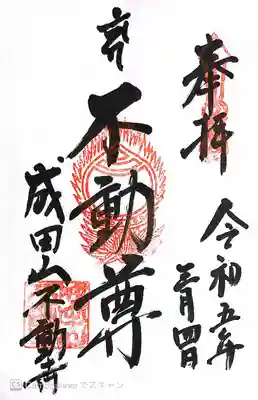 奉拝
令和五年
三月四日
不動尊
成田山不動寺
CS CamScanner でスキャン